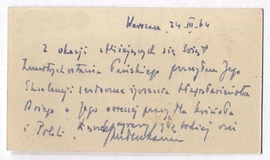 Warszawa, 24. III. 64
Z okazji zbliżających się Świąt
Zmartwychwstania Pańskiego przesyłam Jego
Ekscelencji serdeczne życzenia błogosławieństwa
Bożego w Jego owocnej pracy dla Kościoła
i Polski